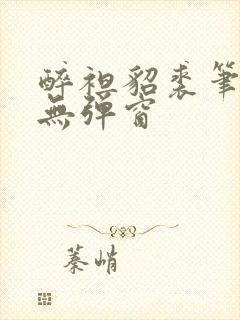 醉袒貂裘筆
無彈窗
蓁峭